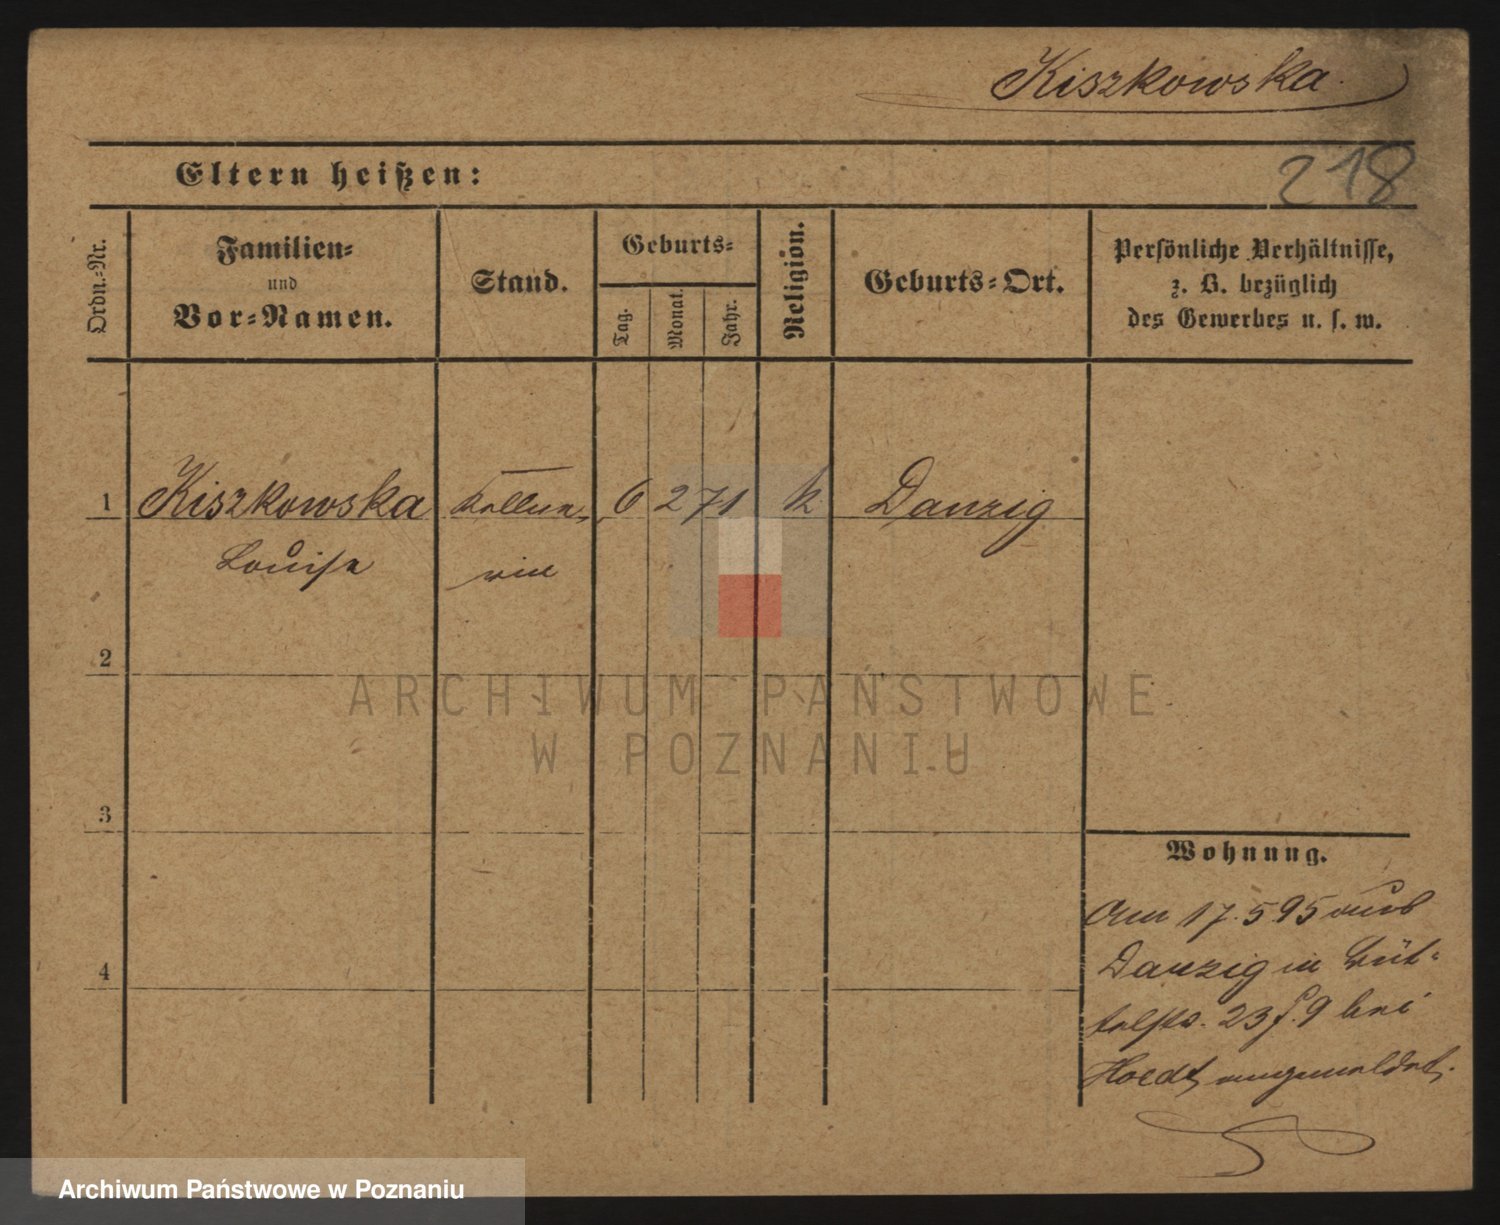 Kiszkowska
218
Eltern heißen:
Ordn.-Nr.
Familien-
und
Vor-Namen.
Stand.
Geburts-
Tag.
Monat.
Jahr.
Religion.
Geburts-Ort.
Persönliche Verhältnisse,
z. B. bezüglich
des Gewerbes u. s. w.
1 Kiszkowska Kellne- 6 2 71 k Danzig
Louise rin
2
ARCHIWUM PAŃSTWOWE
W POZNANIU
3
Wohnung.
Am 17.5 95 aus
Danzig in Büt-
telstr. 23 I. 9 bei
4
Hoedt angemeldet.
Archiwum Państwowe w Poznaniu